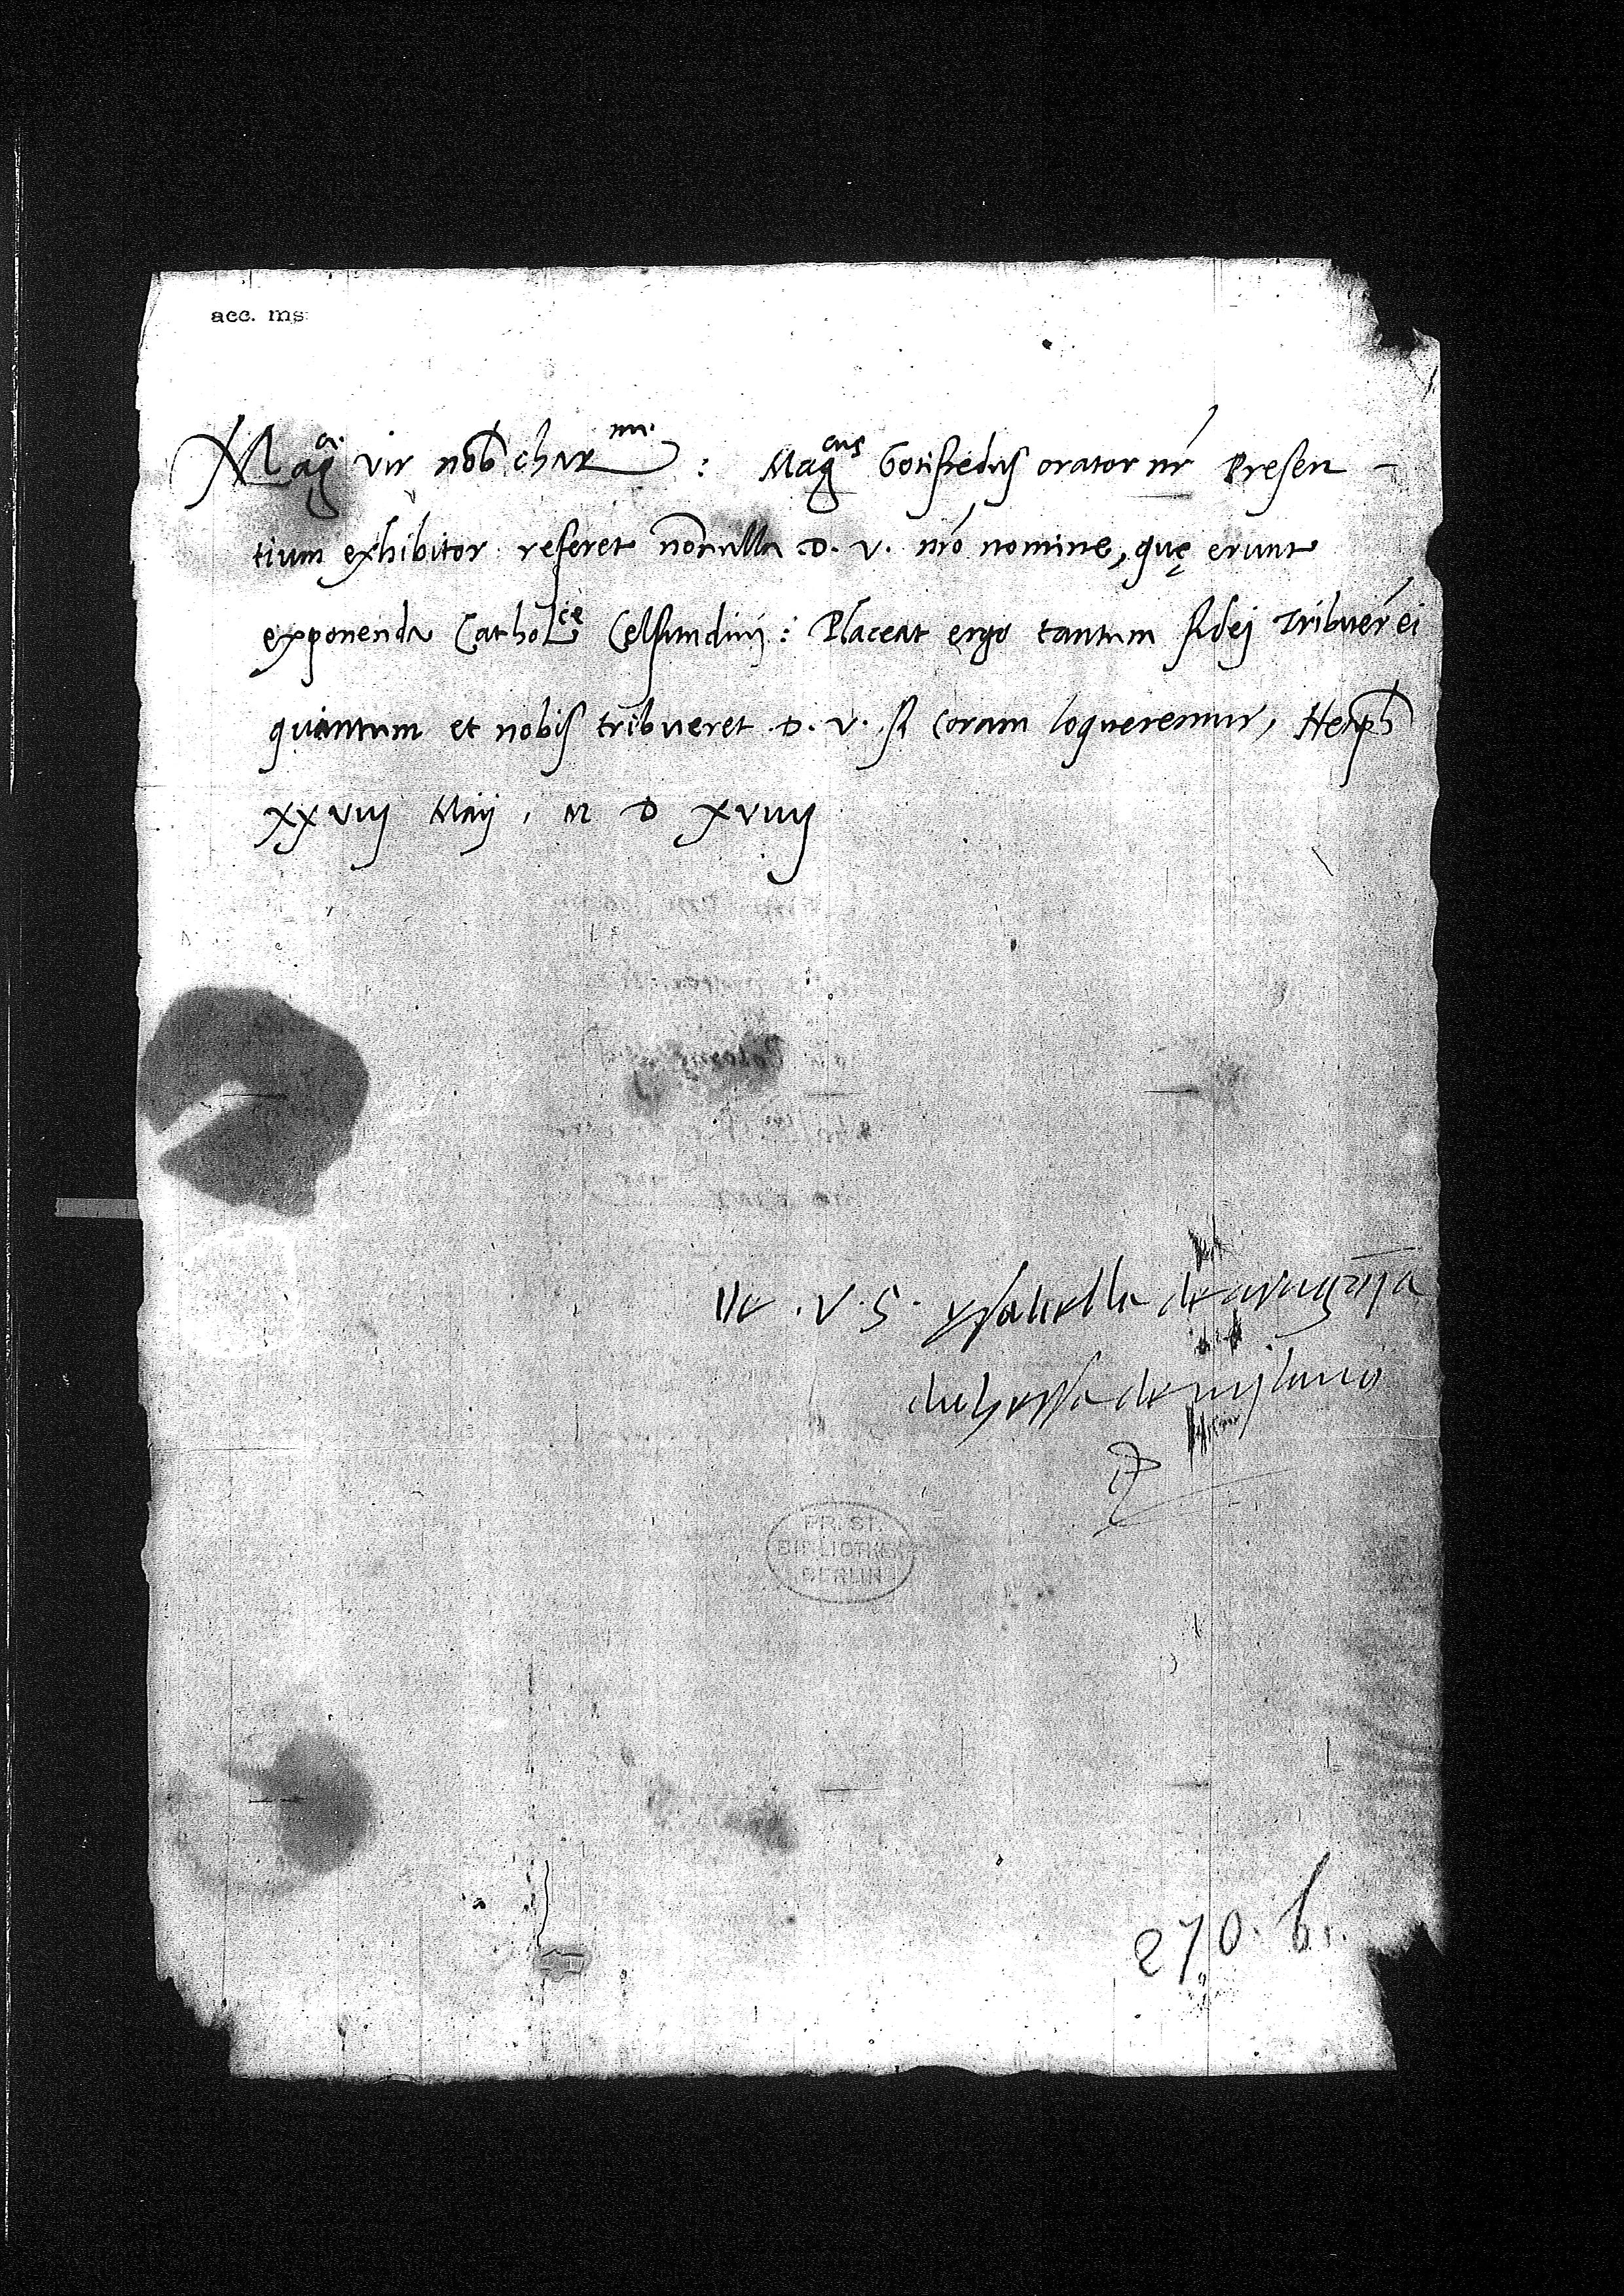 acc. ms.
Mag.ce vir nob. char.me : Mag.cus Gotifredus orator nr Presen-
tium exhibitor referet nonnulla .D. V. nro nomine, quę erunt
exponenda Cathol.cę Celsitudini : Placeat ergo tantum fidej Tribuer ei
quantum et nobis tribueret .D. V. si coram loqueremur,
xxviij Maij. M D xviiij
de .V.S. ysabella de aragonja
duhessa de mjlano
PR. ST.
BIBLIOTHEK
BERLIN
270. b.